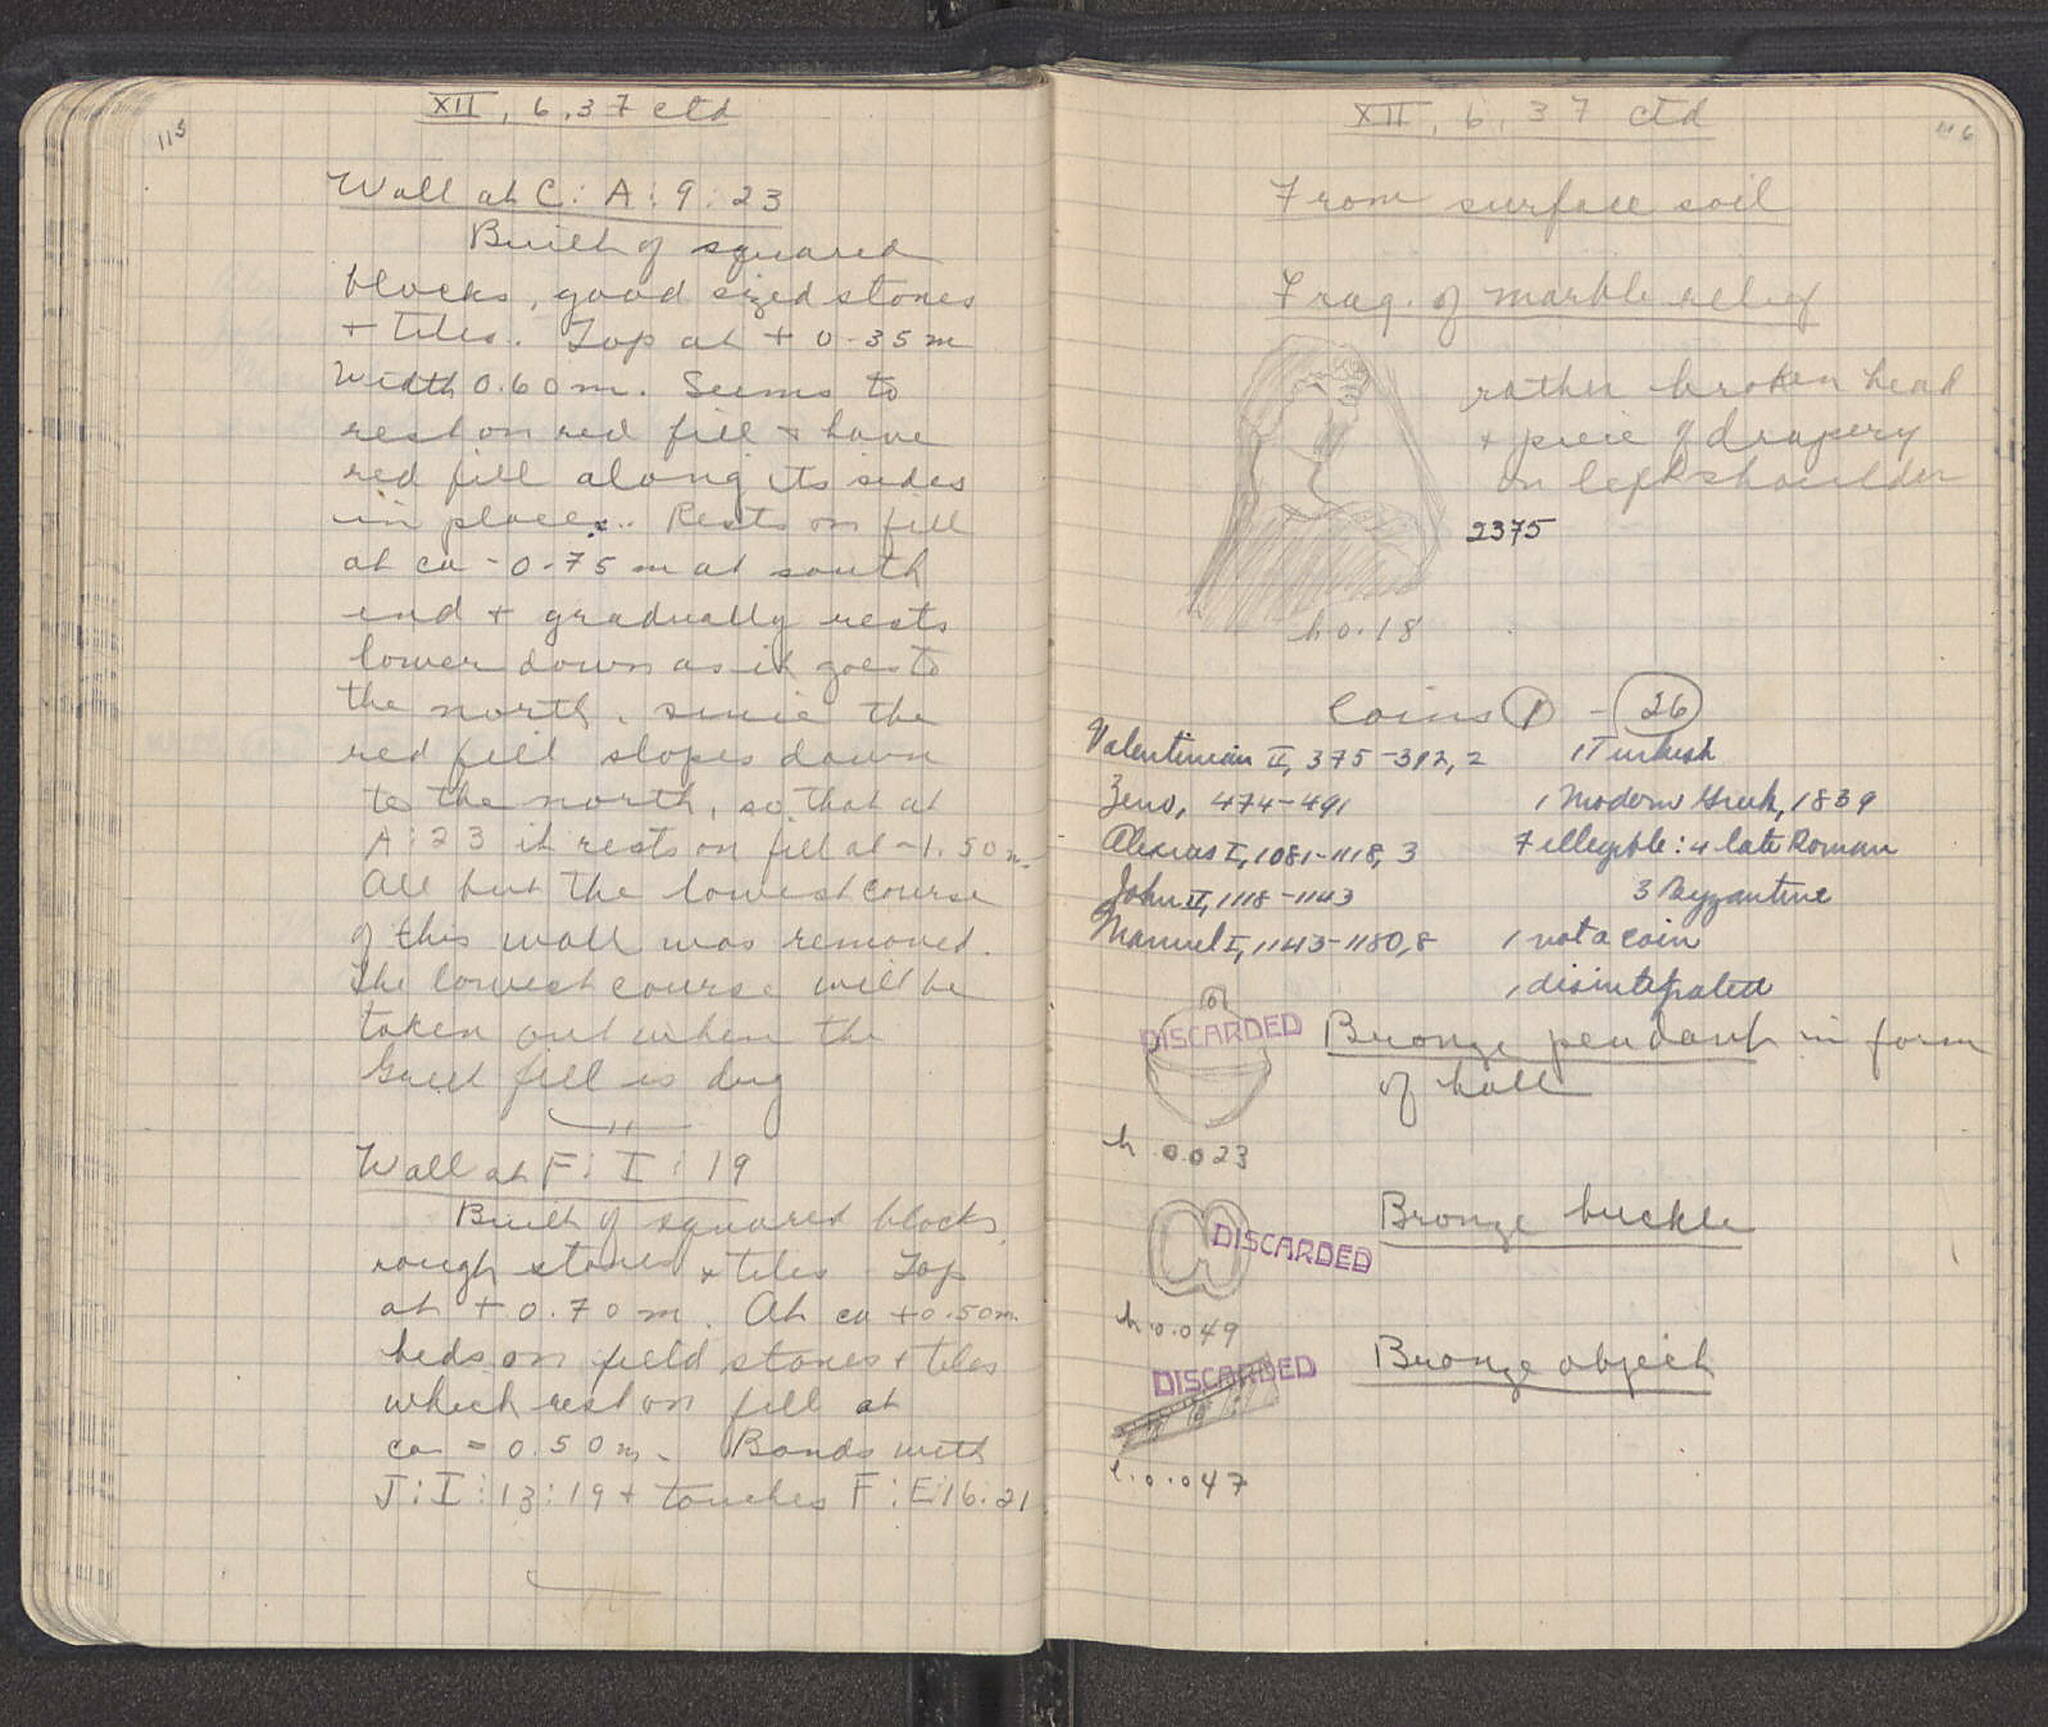 115
XII, 6, 37 ctd
Wall at C: A: 9: 23
Built of squared
blocks, good sized stones
+ tiles. Top at + 0.35 m
Width 0.60 m. Seems to
rest on red fill + have
red fill along its sides
in places. Rests on fill
at ca - 0.75 m at south
end + gradually rests
lower down as it goes to
the north, since the
red fill slopes down
to the north, so that at
A: 23 it rests on fill at -1.50 m
All but the lowest course
of this wall was removed.
The lowest course will be
taken out when the
Greek fill is dug
Wall at F: I: 19
Built of squared blocks,
rough stones + tiles Top
at + 0.70 m. At ca +0.50 m.
beds on field stones + tiles
which rest on fill at
ca - 0.50 m. Bonds with
J: I: 13: 19 + touches F: E: 16. 21
116
XII, 6, 37 ctd
From surface soil
Frag. of marble relief
rather broken head
+ piece of drapery
on left shoulder
2375
h 0.18
Coins 1 - 26
Valentinian II, 375-392, 2
Zeno, 474-491
Alexius I, 1081-1118, 3
John II, 1118-1143
Manuel I, 1143-1180, 8
1 Turkish
1 Modern Greek, 1839
7 illegible: 4 late Roman
3 Byzantine
1 not a coin
1 disintegrated
DISCARDED
Bronze pendant in form
of ball
h 0.023
Bronze buckle
DISCARDED
h 0.049
Bronze object
DISCARDED
l. 0.047